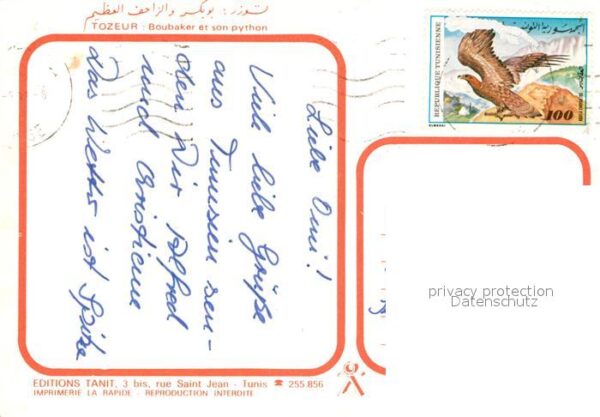 توزر: بوبكر والزاحف العظيم
TOZEUR: Boubaker et son python
Liebe Omi!
Viele liebe Grüße
aus Tunesien sen-
den Dir Alfred
und Christiane
Das Wetter ist Spitze
REPUBLIQUE TUNISIENNE
الجمهورية التونسية
100
privacy protection
Datenschutz
EDITIONS TANIT, 3 bis, rue Saint Jean - Tunis ☎ 255.856
IMPRIMERIE LA RAPIDE - REPRODUCTION INTERDITE